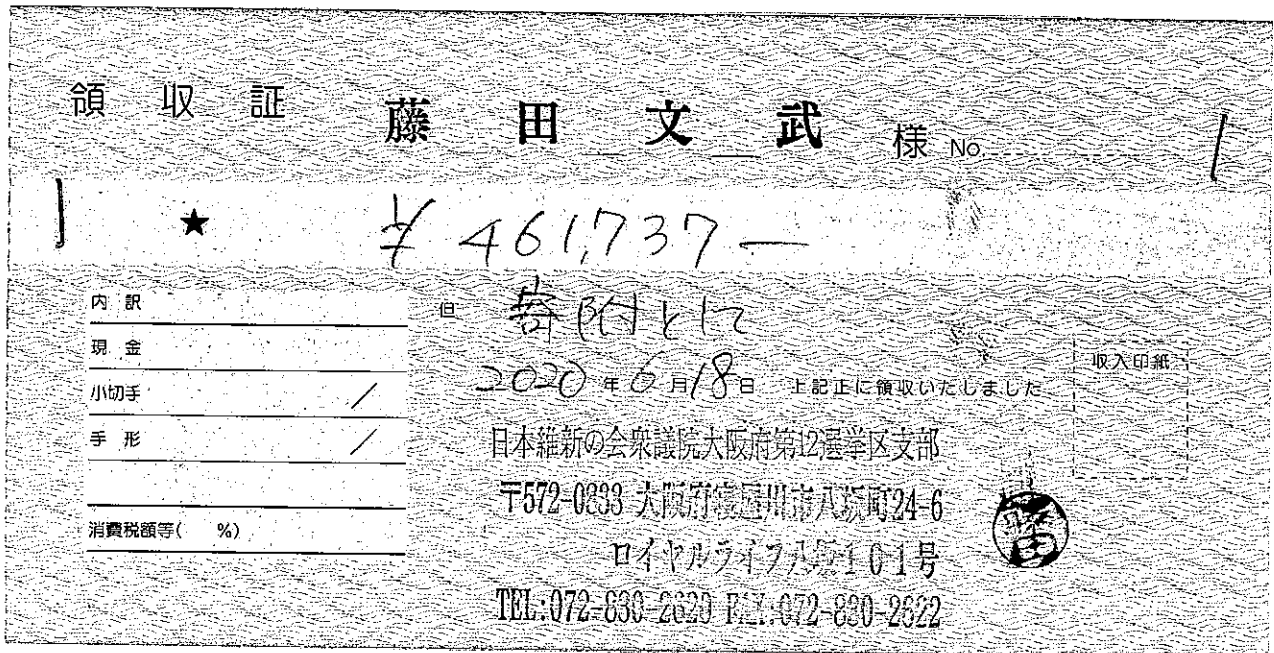 領収証 藤田文武 様 No.
★ ¥461,737—
内訳
現金
小切手 /
手形 /
消費税額等( %)
但 寄附として
2020年6月18日 上記正に領収いたしました
収入印紙
日本維新の会衆議院大阪府第12選挙区支部
〒572-0833 大阪府寝屋川市八坂町24-6
ロイヤルライフ八坂101号
TEL:072-830-2620 FAX:072-830-2622